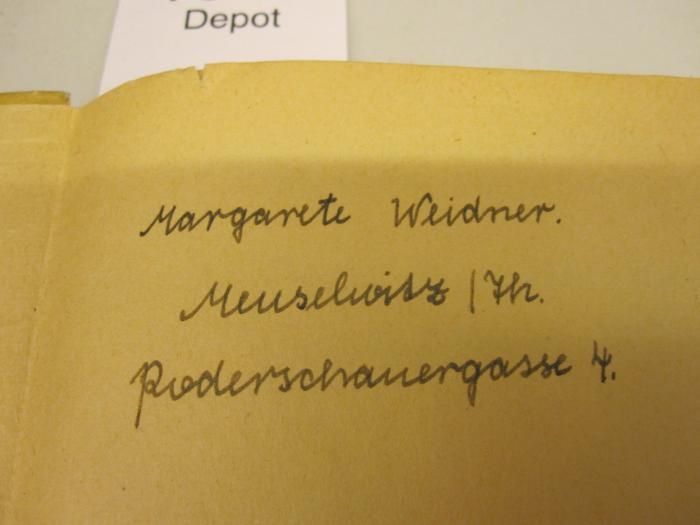 Depot
Margarete Weidner.
Meuselwitz / Th.
Poderschauergasse 4.